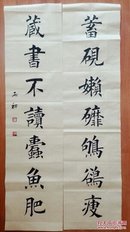 蓄硯嬾磨鴝鵒瘦
藏書不讀蠹魚肥